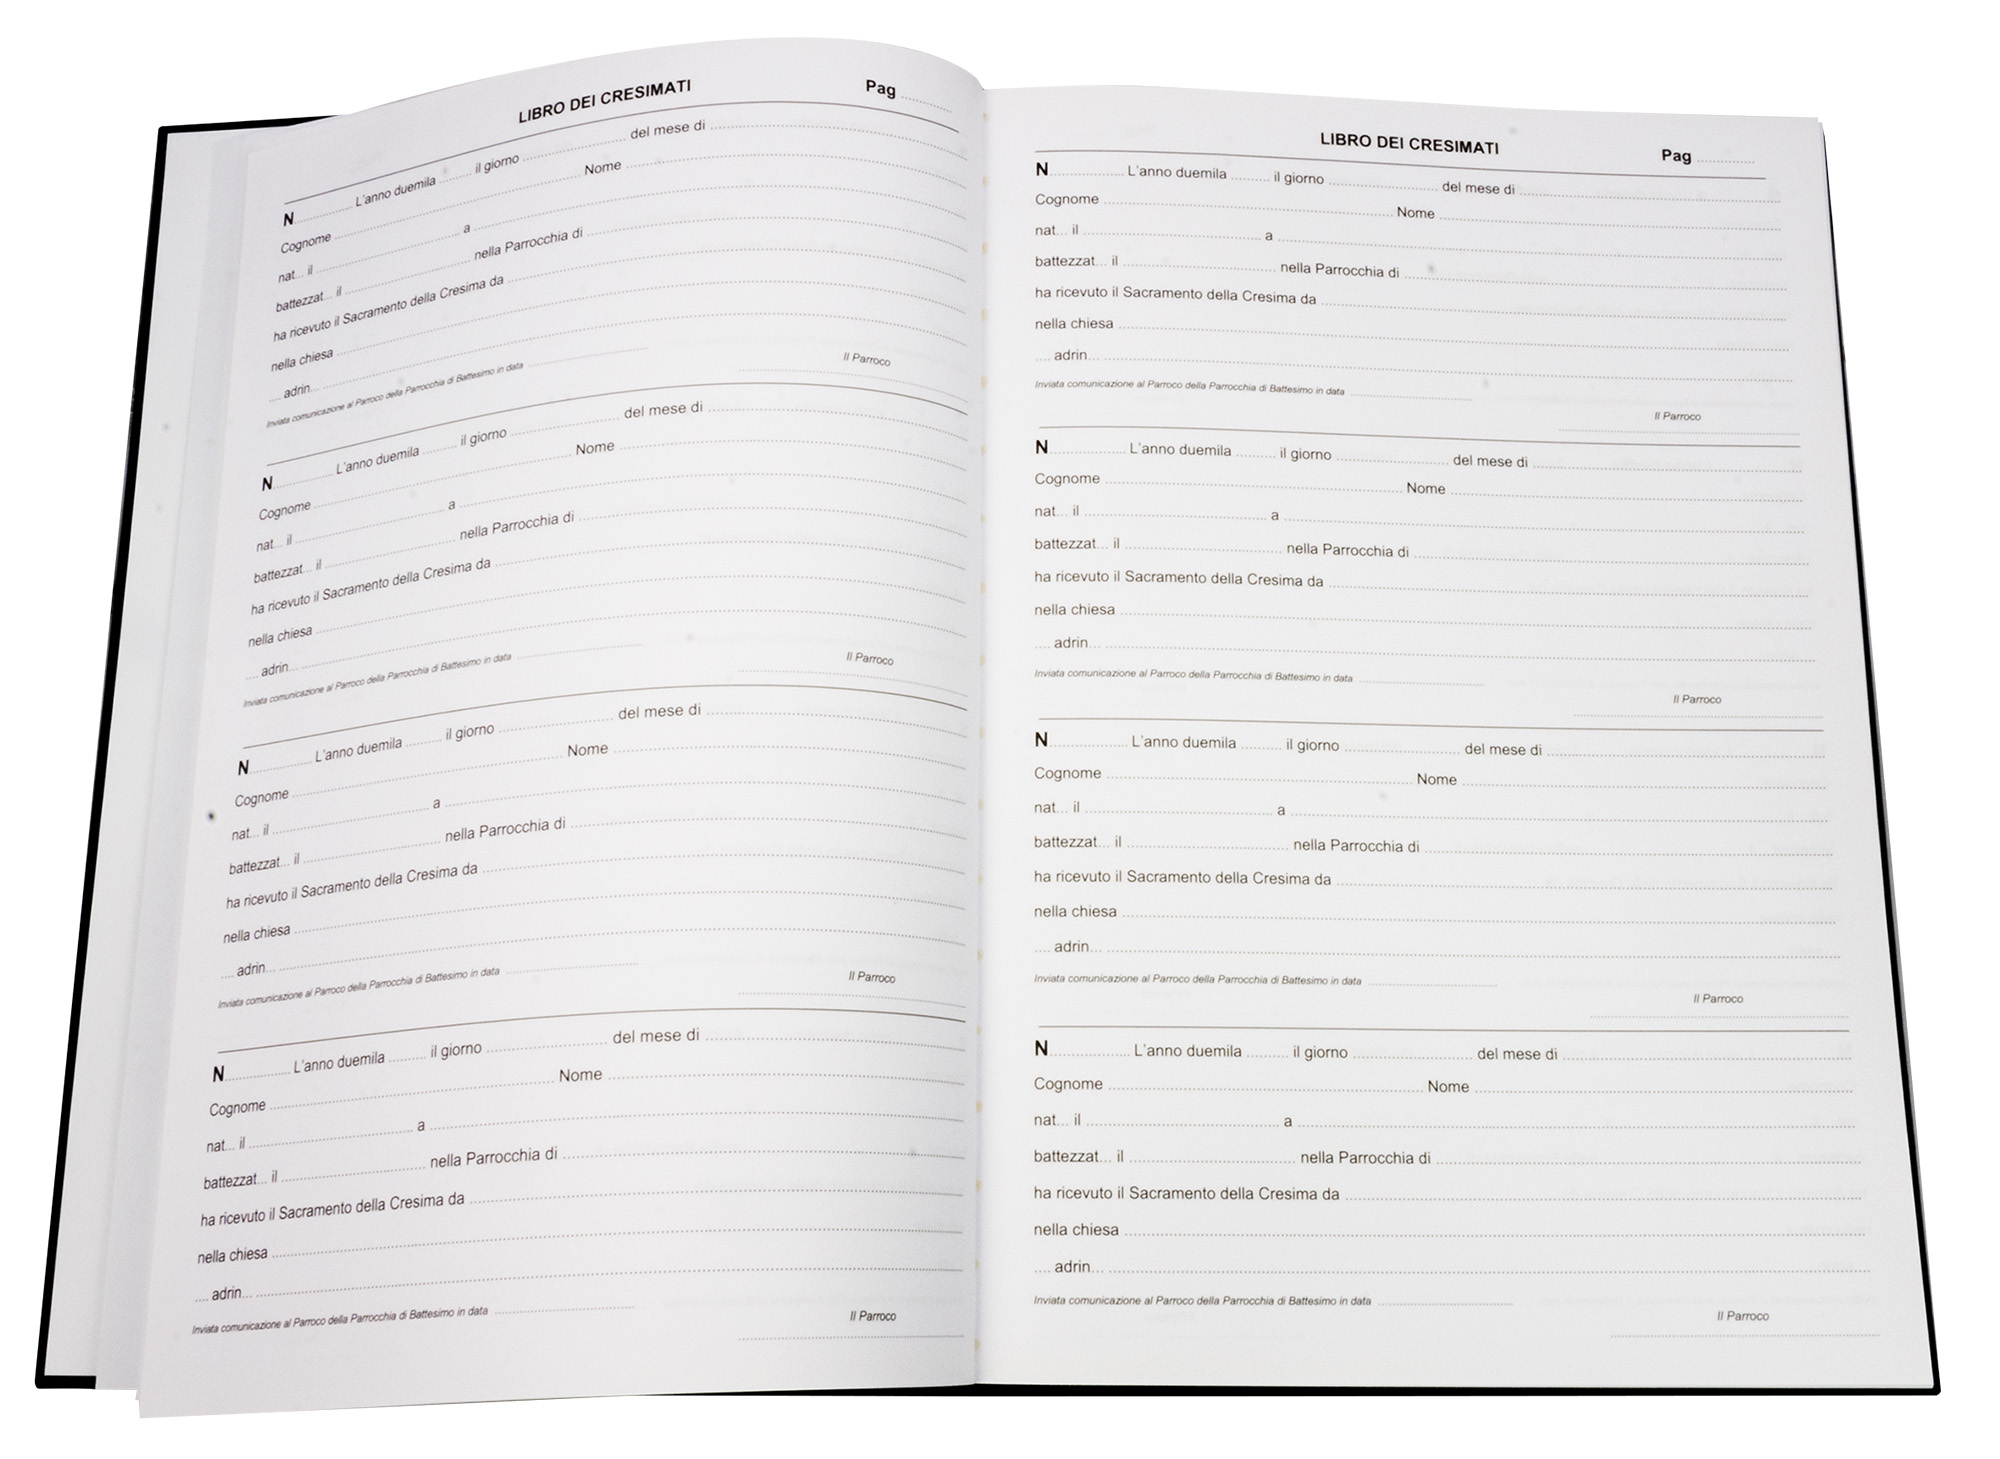 LIBRO DEI CRESIMATI Pag ..........
N .......... L'anno duemila .......... il giorno .......... del mese di ..........
Cognome .......... Nome ..........
nat... il .......... a ..........
battezzat... il .......... nella Parrocchia di ..........
ha ricevuto il Sacramento della Cresima da ..........
nella chiesa ..........
.... adrin... ..........
Inviata comunicazione al Parroco della Parrocchia di Battesimo in data ..........
Il Parroco
N .......... L'anno duemila .......... il giorno .......... del mese di ..........
Cognome .......... Nome ..........
nat... il .......... a ..........
battezzat... il .......... nella Parrocchia di ..........
ha ricevuto il Sacramento della Cresima da ..........
nella chiesa ..........
.... adrin... ..........
Inviata comunicazione al Parroco della Parrocchia di Battesimo in data ..........
Il Parroco
N .......... L'anno duemila .......... il giorno .......... del mese di ..........
Cognome .......... Nome ..........
nat... il .......... a ..........
battezzat... il .......... nella Parrocchia di ..........
ha ricevuto il Sacramento della Cresima da ..........
nella chiesa ..........
.... adrin... ..........
Inviata comunicazione al Parroco della Parrocchia di Battesimo in data ..........
Il Parroco
N .......... L'anno duemila .......... il giorno .......... del mese di ..........
Cognome .......... Nome ..........
nat... il .......... a ..........
battezzat... il .......... nella Parrocchia di ..........
ha ricevuto il Sacramento della Cresima da ..........
nella chiesa ..........
.... adrin... ..........
Inviata comunicazione al Parroco della Parrocchia di Battesimo in data ..........
Il Parroco
LIBRO DEI CRESIMATI Pag ..........
N .......... L'anno duemila .......... il giorno .......... del mese di ..........
Cognome .......... Nome ..........
nat... il .......... a ..........
battezzat... il .......... nella Parrocchia di ..........
ha ricevuto il Sacramento della Cresima da ..........
nella chiesa ..........
.... adrin... ..........
Inviata comunicazione al Parroco della Parrocchia di Battesimo in data ..........
Il Parroco
N .......... L'anno duemila .......... il giorno .......... del mese di ..........
Cognome .......... Nome ..........
nat... il .......... a ..........
battezzat... il .......... nella Parrocchia di ..........
ha ricevuto il Sacramento della Cresima da ..........
nella chiesa ..........
.... adrin... ..........
Inviata comunicazione al Parroco della Parrocchia di Battesimo in data ..........
Il Parroco
N .......... L'anno duemila .......... il giorno .......... del mese di ..........
Cognome .......... Nome ..........
nat... il .......... a ..........
battezzat... il .......... nella Parrocchia di ..........
ha ricevuto il Sacramento della Cresima da ..........
nella chiesa ..........
.... adrin... ..........
Inviata comunicazione al Parroco della Parrocchia di Battesimo in data ..........
Il Parroco
N .......... L'anno duemila .......... il giorno .......... del mese di ..........
Cognome .......... Nome ..........
nat... il .......... a ..........
battezzat... il .......... nella Parrocchia di ..........
ha ricevuto il Sacramento della Cresima da ..........
nella chiesa ..........
.... adrin... ..........
Inviata comunicazione al Parroco della Parrocchia di Battesimo in data ..........
Il Parroco